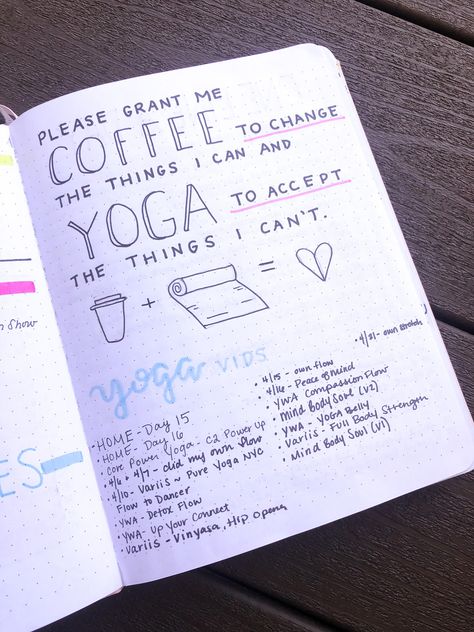 PLEASE GRANT ME
COFFEE TO CHANGE
THE THINGS I CAN AND
YOGA TO ACCEPT
THE THINGS I CAN'T.
+ =
Show
ES
yoga VIDS
• HOME - Day 15
• HOME - Day 16
• Core Power Yoga - C2 Power Up
• 4/6 + 4/7 - did my own flow
• 4/10 - Variis ~ Pure Yoga NYC
Flow to Dancer
• YWA - Detox Flow
• YWA - Up Your Connect
• Variis - Vinyasa, Hip Opens
• 4/15 - own flow
• 4/16 - Peace of Mind
• YWA Compassion Flow
• Mind Body Soul (V2)
• YWA - YOGA Belly
• Variis - Full Body Strength
• Mind Body Soul (V1)
• 4/21 - own stretch